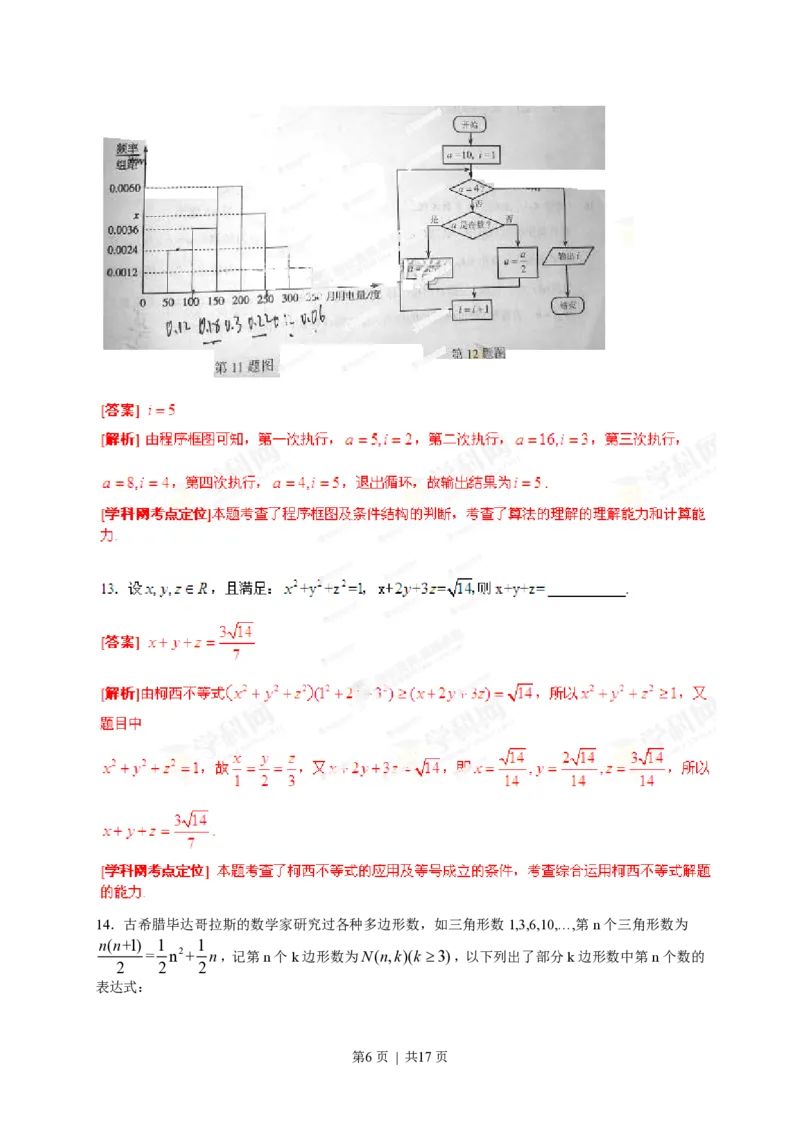 频率
组距
0.0060
x
0.0036
0.0024
0.0012
0 50 100 150 200 250 300 350 月用电量/度
0.12 0.18 0.3 0.22 0.06
第11题图
开始
a=10, i=1
a=4?
否
是 a是奇数? 否
a=a/2
输出i
i=i+1
结束
第12题图
[答案] i=5
[解析] 由程序框图可知，第一次执行，a=5,i=2，第二次执行，a=16,i=3，第三次执行，
a=8,i=4，第四次执行，a=4,i=5，退出循环，故输出结果为i=5.
[学科网考点定位]本题考查了程序框图及条件结构的判断，考查了算法的理解的理解能力和计算能
力.
13. 设x,y,z∈R，且满足：x²+y²+z²=1，x+2y+3z=√14,则x+y+z=________.
[答案] x+y+z=3√14/7
[解析]由柯西不等式(x²+y²+z²)(1²+2²+3²)≥(x+2y+3z)=√14，所以x²+y²+z²≥1，又
题目中
x²+y²+z²=1，故x/1=y/2=z/3，又x+2y+3z=√14，即x=√14/14,y=2√14/14,z=3√14/14，所以
x+y+z=3√14/7.
[学科网考点定位] 本题考查了柯西不等式的应用及等号成立的条件，考查综合运用柯西不等式解题
的能力.
14. 古希腊毕达哥拉斯的数学家研究过各种多边形数，如三角形数1,3,6,10,…,第n个三角形数为
n(n+1)/2=1/2n²+1/2n，记第n个k边形数为N(n,k)(k≥3)，以下列出了部分k边形数中第n个数的
表达式：
第6页 | 共17页